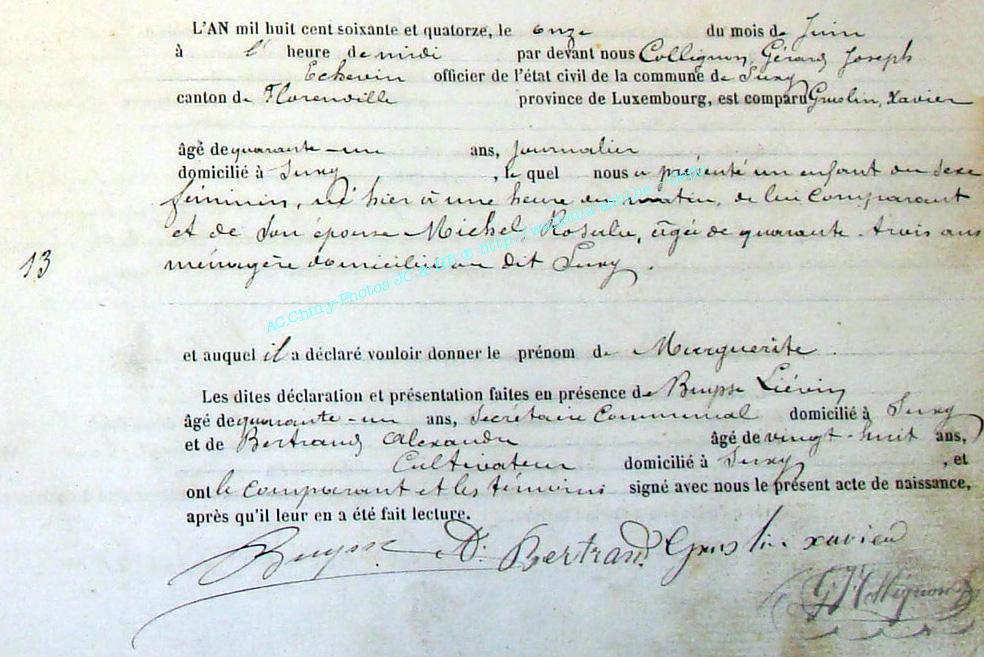 L'AN mil huit cent soixante et quatorze, le onze du mois de Juin
à l' heure de midi par devant nous Collignon, Gérard Joseph
Echevin officier de l'état civil de la commune de Suxy
canton de Florenville province de Luxembourg, est comparu Goislin, Xavier
âgé de quarante-un ans, journalier
domicilié à Suxy, le quel nous a présenté un enfant du sexe
féminin, né hier à une heure du matin, de lui Comparant
et de son épouse Michel, Rosalie, âgée de quarante-trois ans
13
ménagère domiciliée au dit Suxy.
AC.Chiny-Photos JC
et auquel il a déclaré vouloir donner le prénom de Marguerite.
Les dites déclaration et présentation faites en présence de Buysse Liévin
âgé de quarante-un ans, Secrétaire Communal domicilié à Suxy
et de Bertrand Alexandre âgé de vingt-huit ans,
Cultivateur domicilié à Suxy, et
ont le comparant et les témoins signé avec nous le présent acte de naissance,
après qu'il leur en a été fait lecture.
Buysse A. Bertrand Goislin xavier
G J Collignon